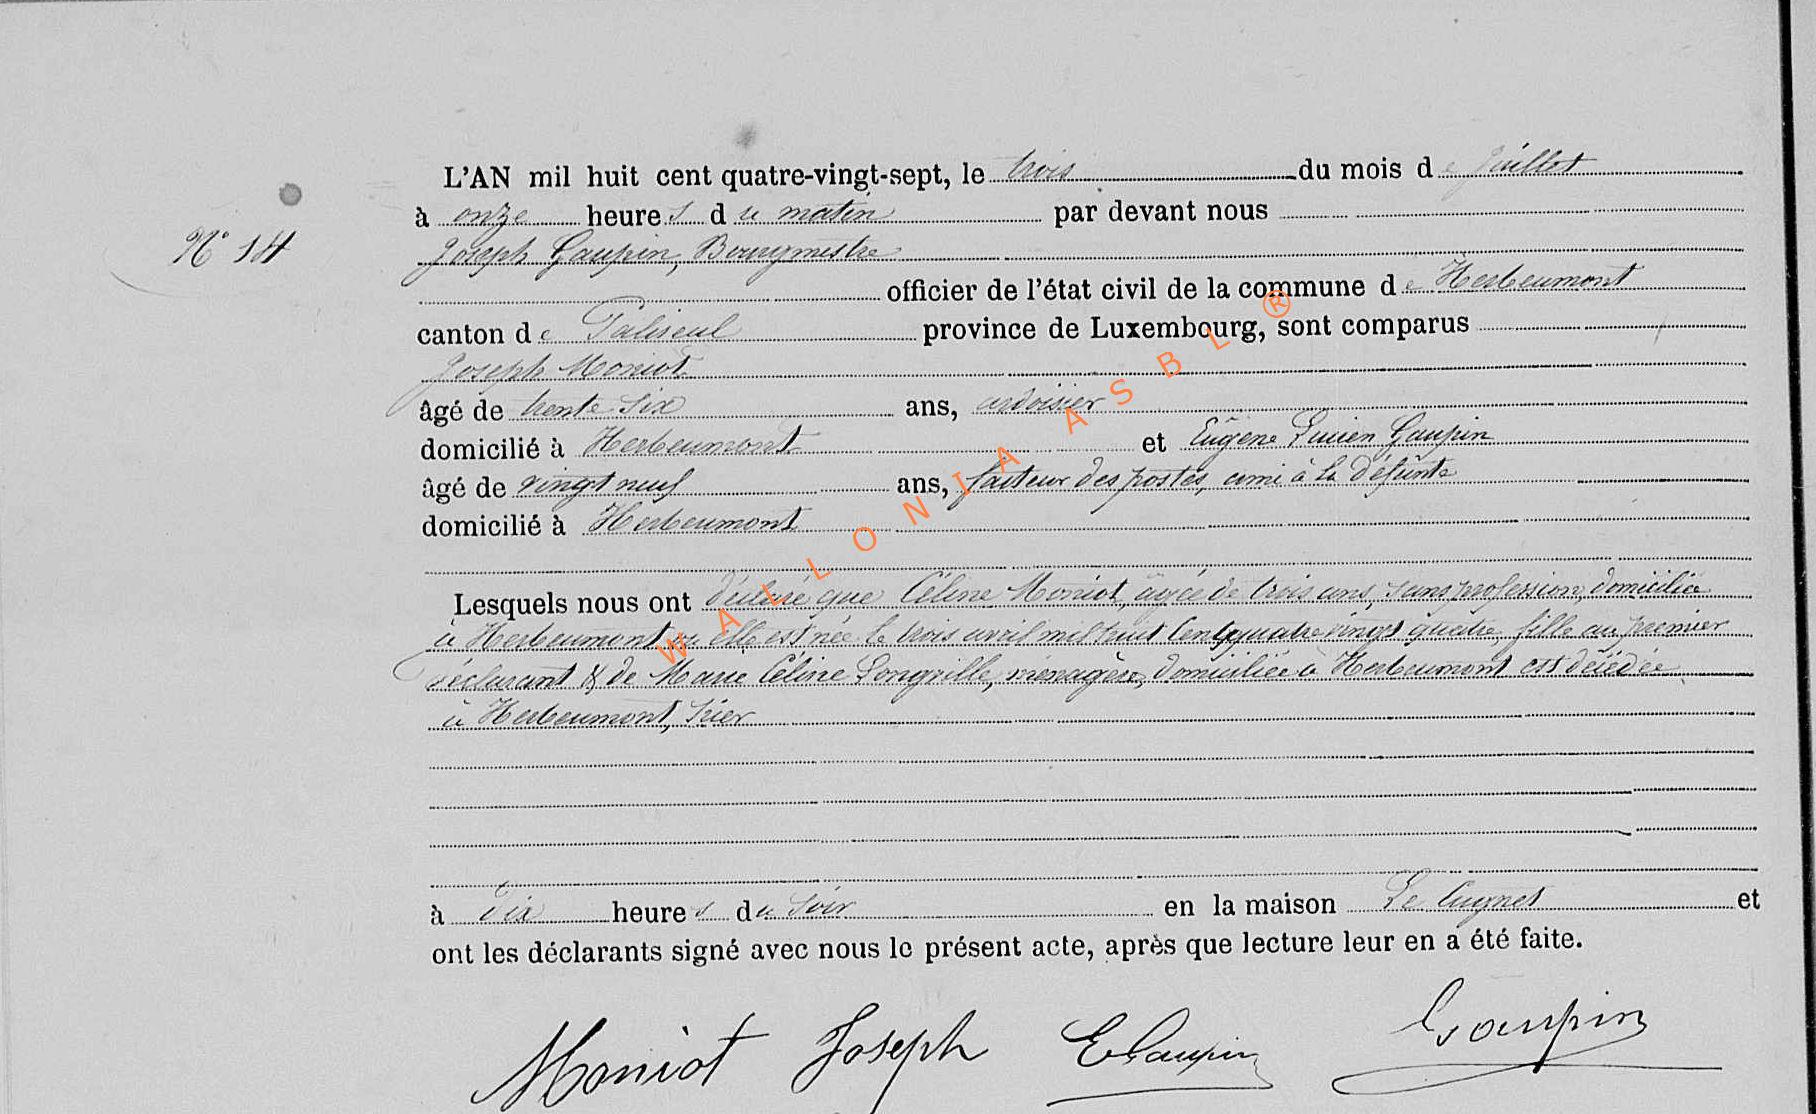 L'AN mil huit cent quatre-vingt-sept, le trois du mois de Juillet
à onze heures du matin par devant nous
N° 14
Joseph Gaupin, Bourgmestre
officier de l'état civil de la commune de Herbeumont
canton de Paliseul province de Luxembourg, sont comparus
Joseph Moniot
âgé de trente six ans, ardoisier
domicilié à Herbeumont et Eugène Lucien Gaupin
âgé de vingt neuf ans, facteur des postes, ami à la défunte
domicilié à Herbeumont
Lesquels nous ont déclaré que Céline Moniot, âgée de trois ans, sans profession, domiciliée
à Herbeumont où elle est née le trois avril mil huit cent quatre vingt quatre, fille au premier
déclarant & de Marie Céline Songville, ménagère, domiciliée à Herbeumont est décédée
à Herbeumont, hier
à dix heures du soir en la maison Le Cugnet et
ont les déclarants signé avec nous le présent acte, après que lecture leur en a été faite.
Moniot Joseph EGaupin Gaupin
WALLONIA ASBL ®